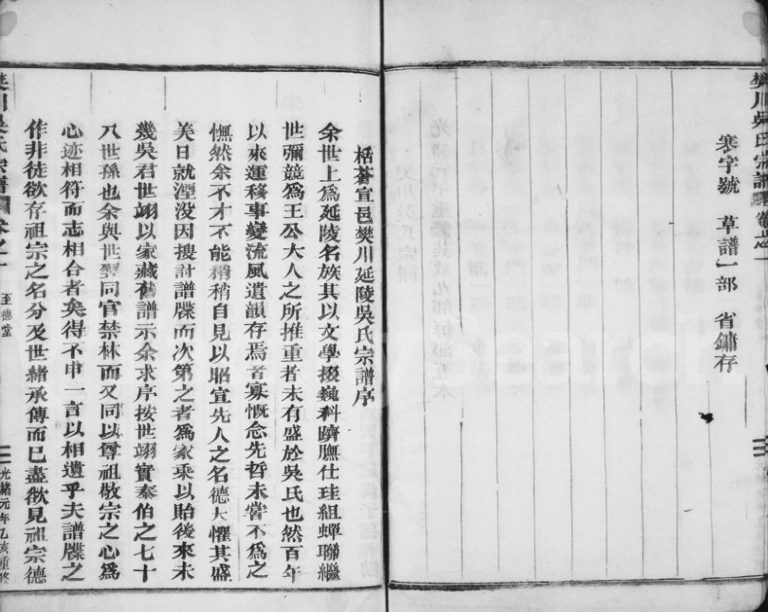 樊川吳氏宗譜 卷之一
寒字號 草譜一部 省鏞存
栝蒼宣邑樊川延陵吳氏宗譜序
余世上為延陵名族其以文學掇巍科躋膴仕珪組蟬聯繼
世彌競為王公大人之所推重者未有盛於吳氏也然百年
以來運移事變流風遺韻存焉者寡慨念先哲未嘗不為之
憮然余不才不能稍稍自見以昭宣先人之名德大懼其盛
美日就湮没因搜討譜牒而次第之者為家乘以貽後來未
幾吳君世翊以家藏舊譜示余求序按世翊實泰伯之七十
八世孫也余與世翊同官禁林而又同以尊祖敬宗之心為
心迹相符而志相合者矣得不申一言以相遺乎夫譜牒之
作非徒欲存祖宗之名分及世緒承傳而已盡欲見祖宗德
樊川吳氏宗譜 卷之一 至德堂 光緒元年乙亥重修